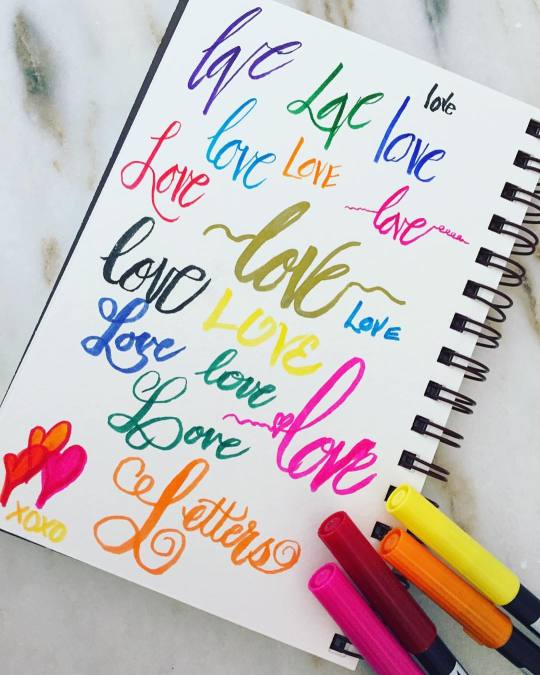 love
Love
love
love
LOVE
love
Love
love
love
love
LOVE
LOVE
Love
love
Love
love
Letters
XOXO